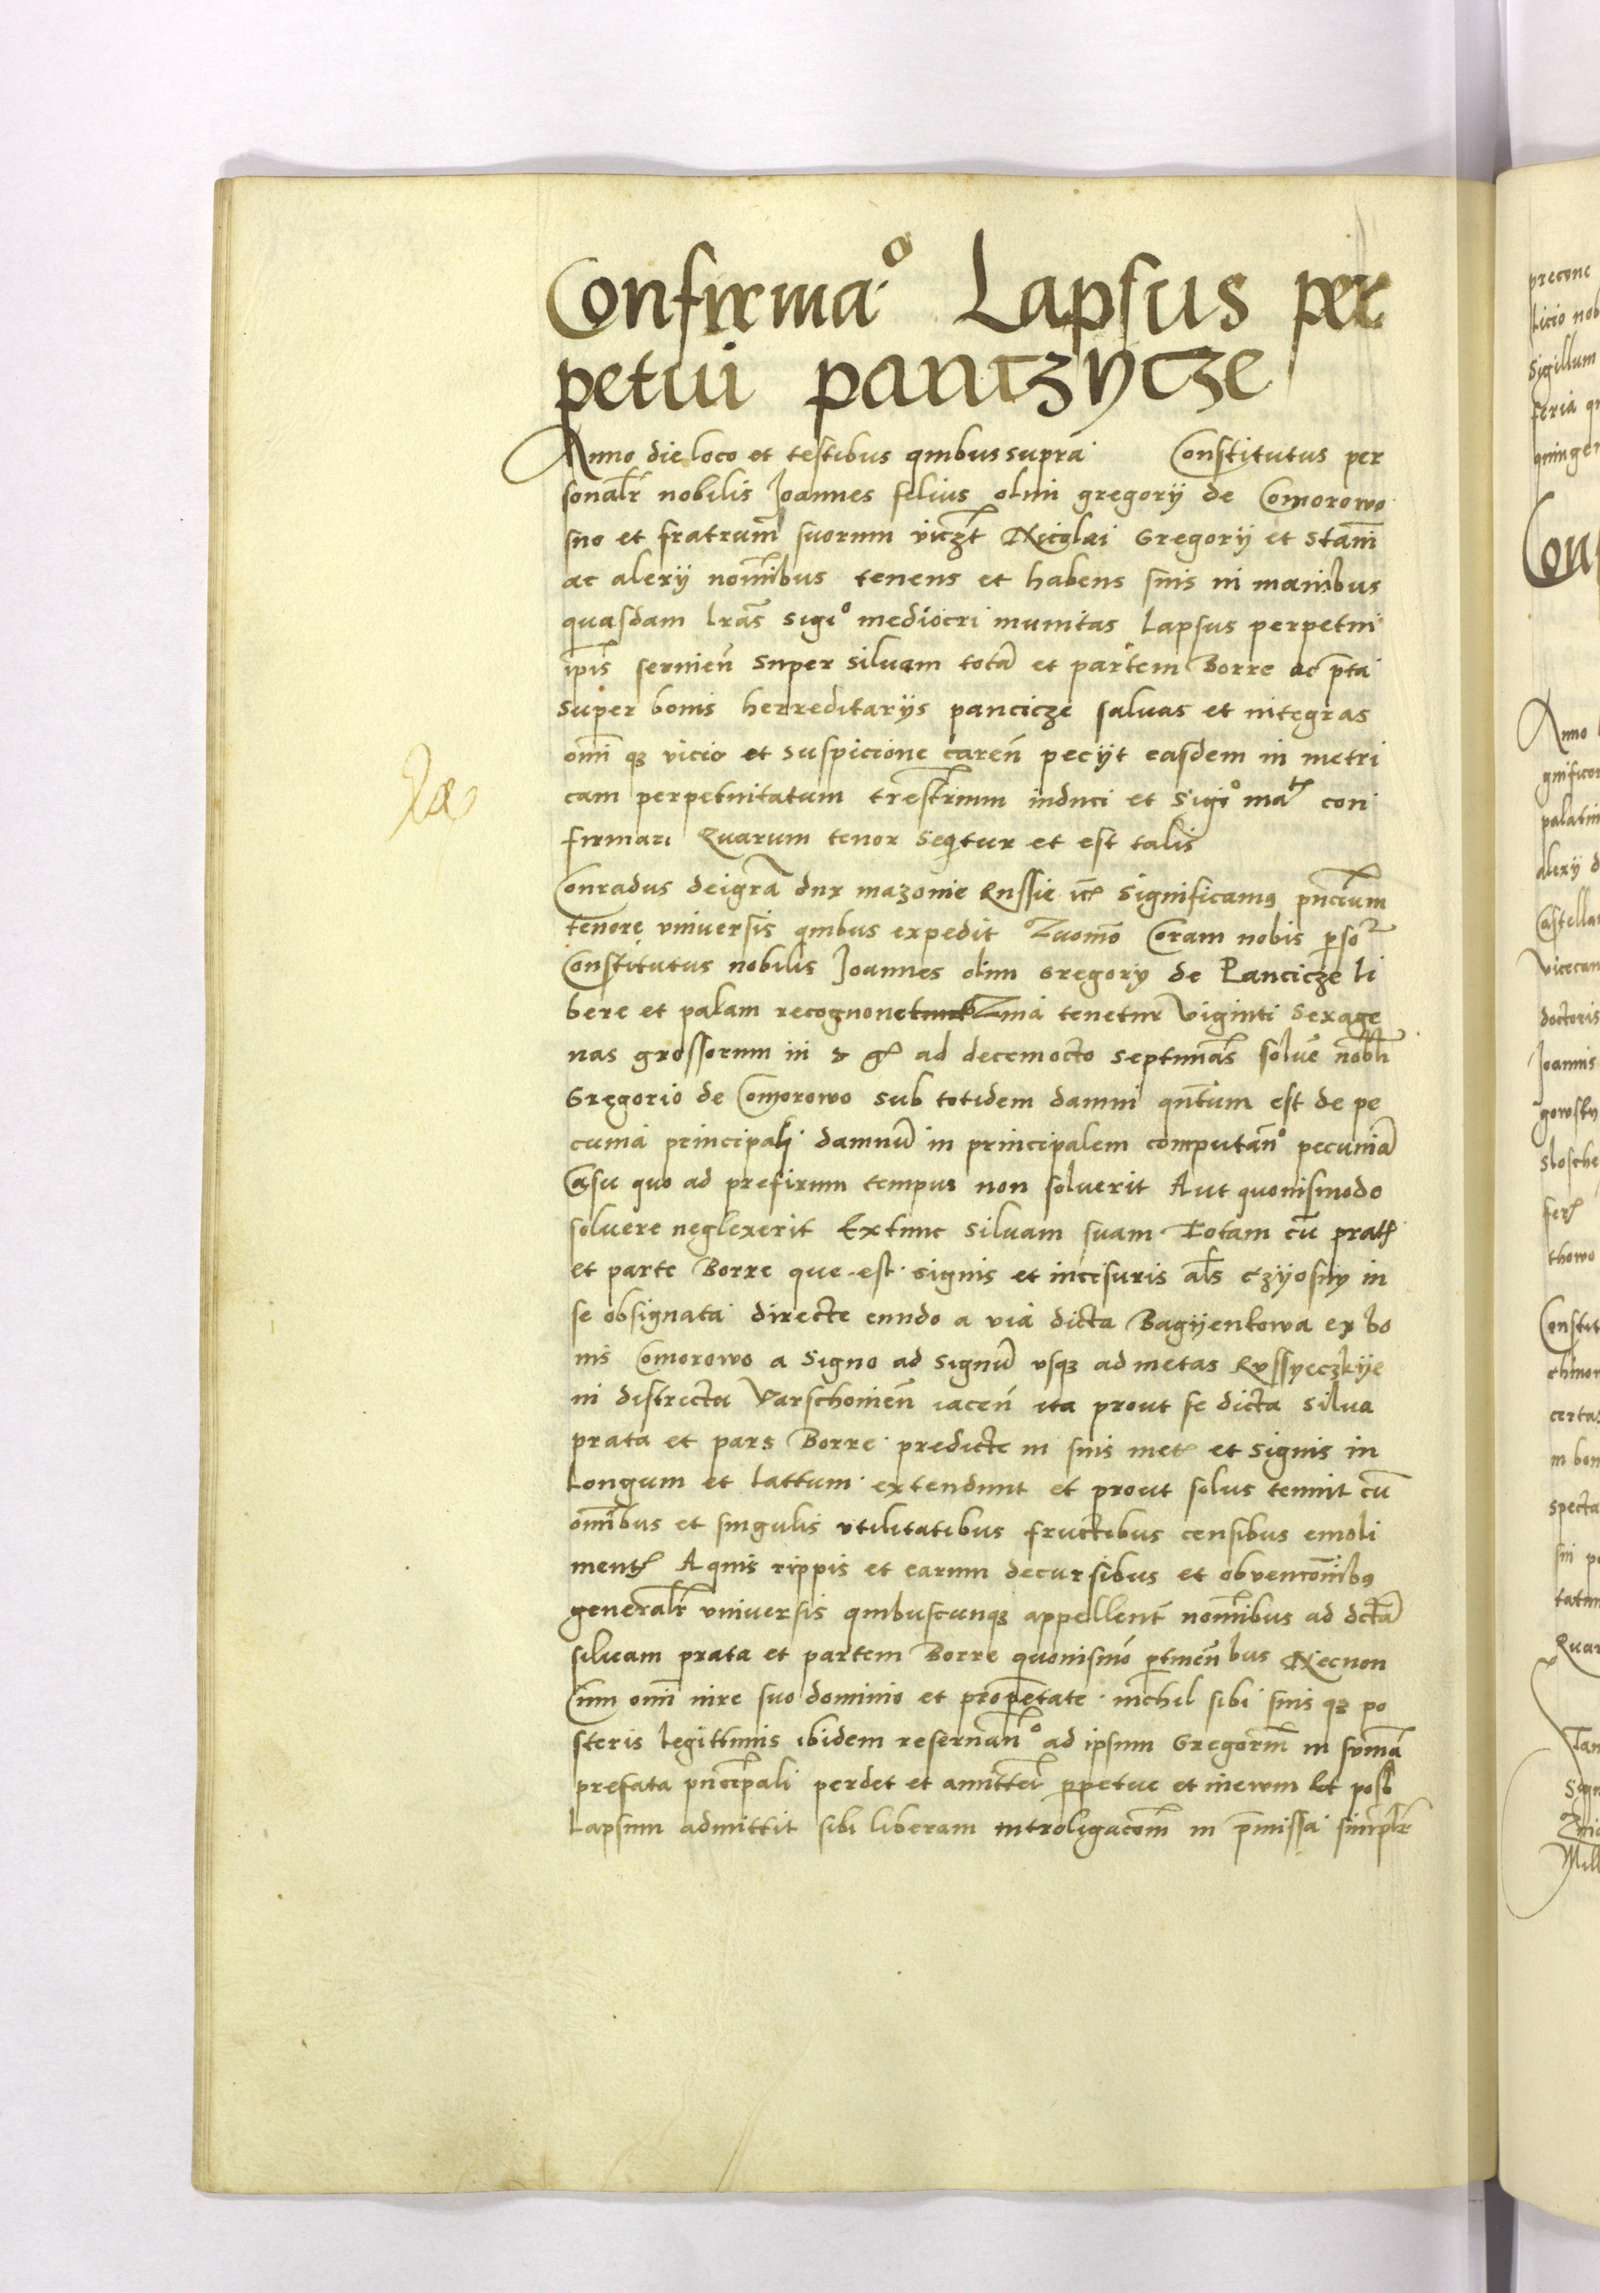 Confirma.o Lapsus per
petui pantzycze
Anno die loco et testibus quibus supra Constitutus per
sonalr nobilis Joannes filius olim gregorij de Comorowo
suo et fratrum suorum viczt Nicolai Gregorij et Stani
ac alexij nominibus tenens et habens suis in manibus
quasdam lras sigio mediocri munitas lapsus perpetui
ipis servien super silvam tota et partem Borre ac pta
super bonis herreditarijs pancicze salvas et integras
omni qz vicio et suspicione caren pecijt easdem in metri
cam perpetuitatum trestrium induci et sigio con
firmari Quarum tenor Seqtur et est talis
Conradus dei gra dux mazovie Russie Significamus pncium
tenore universis quibus expedit Quomo Coram nobis
Constitutus nobilis Joannes olim Gregorij de Pancicze li
bere et palam tenetur Viginti Sexage
nas grossorum in ad decemocto septimas solve nobli
Gregorio de Comorowo sub totidem damni qntum est de pe
cunia principali damnu in principalem computano pecunia
Casu quo ad prefixum tempus non solverit Aut quovismodo
solvere neglexerit Extunc silvam suam Totam cu prat
et parte Borre que est signis et incisuris als czyosny in
se obsignata directe eundo a via dicta Bagyenkowa ex bo
nis Comorowo a Signo ad signu usqz ad metas Russyeczkije
in districtu Varschovien iacen ita prout se dicta silva
prata et pars Borre predicte in suis met et signis in
Longum et lattum extendunt et prout solus tenuit cu
omnibus et singulis utilitatibus fructibus censibus emoli
ment Aquis rippis et earum decursibus et obvencionibus
generalr universis quibuscunqz appellent nominibus ad dcta
silvam prata et partem Borre quovismo ptinenbus Necnon
Cum omni iure suo dominio et proprietate nichil sibi suis qz po
steris legittimis ibidem reservano ad ipsum Gregorium in suma
prefata principali perdet et amittet perpetue et inevum Et post
Lapsum admittit sibi liberam introligacom in pmissa simplr